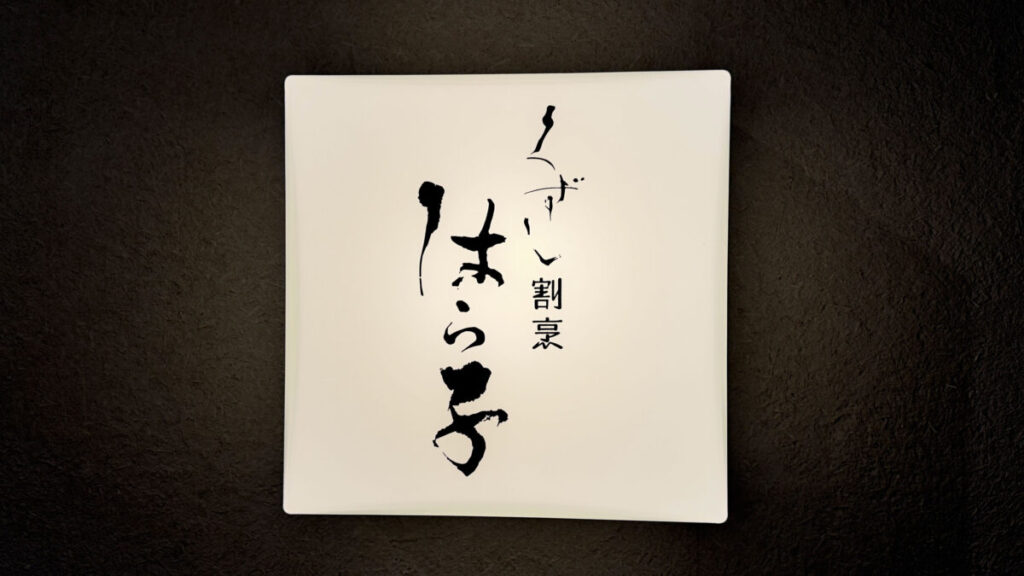 くずし割烹
はら子